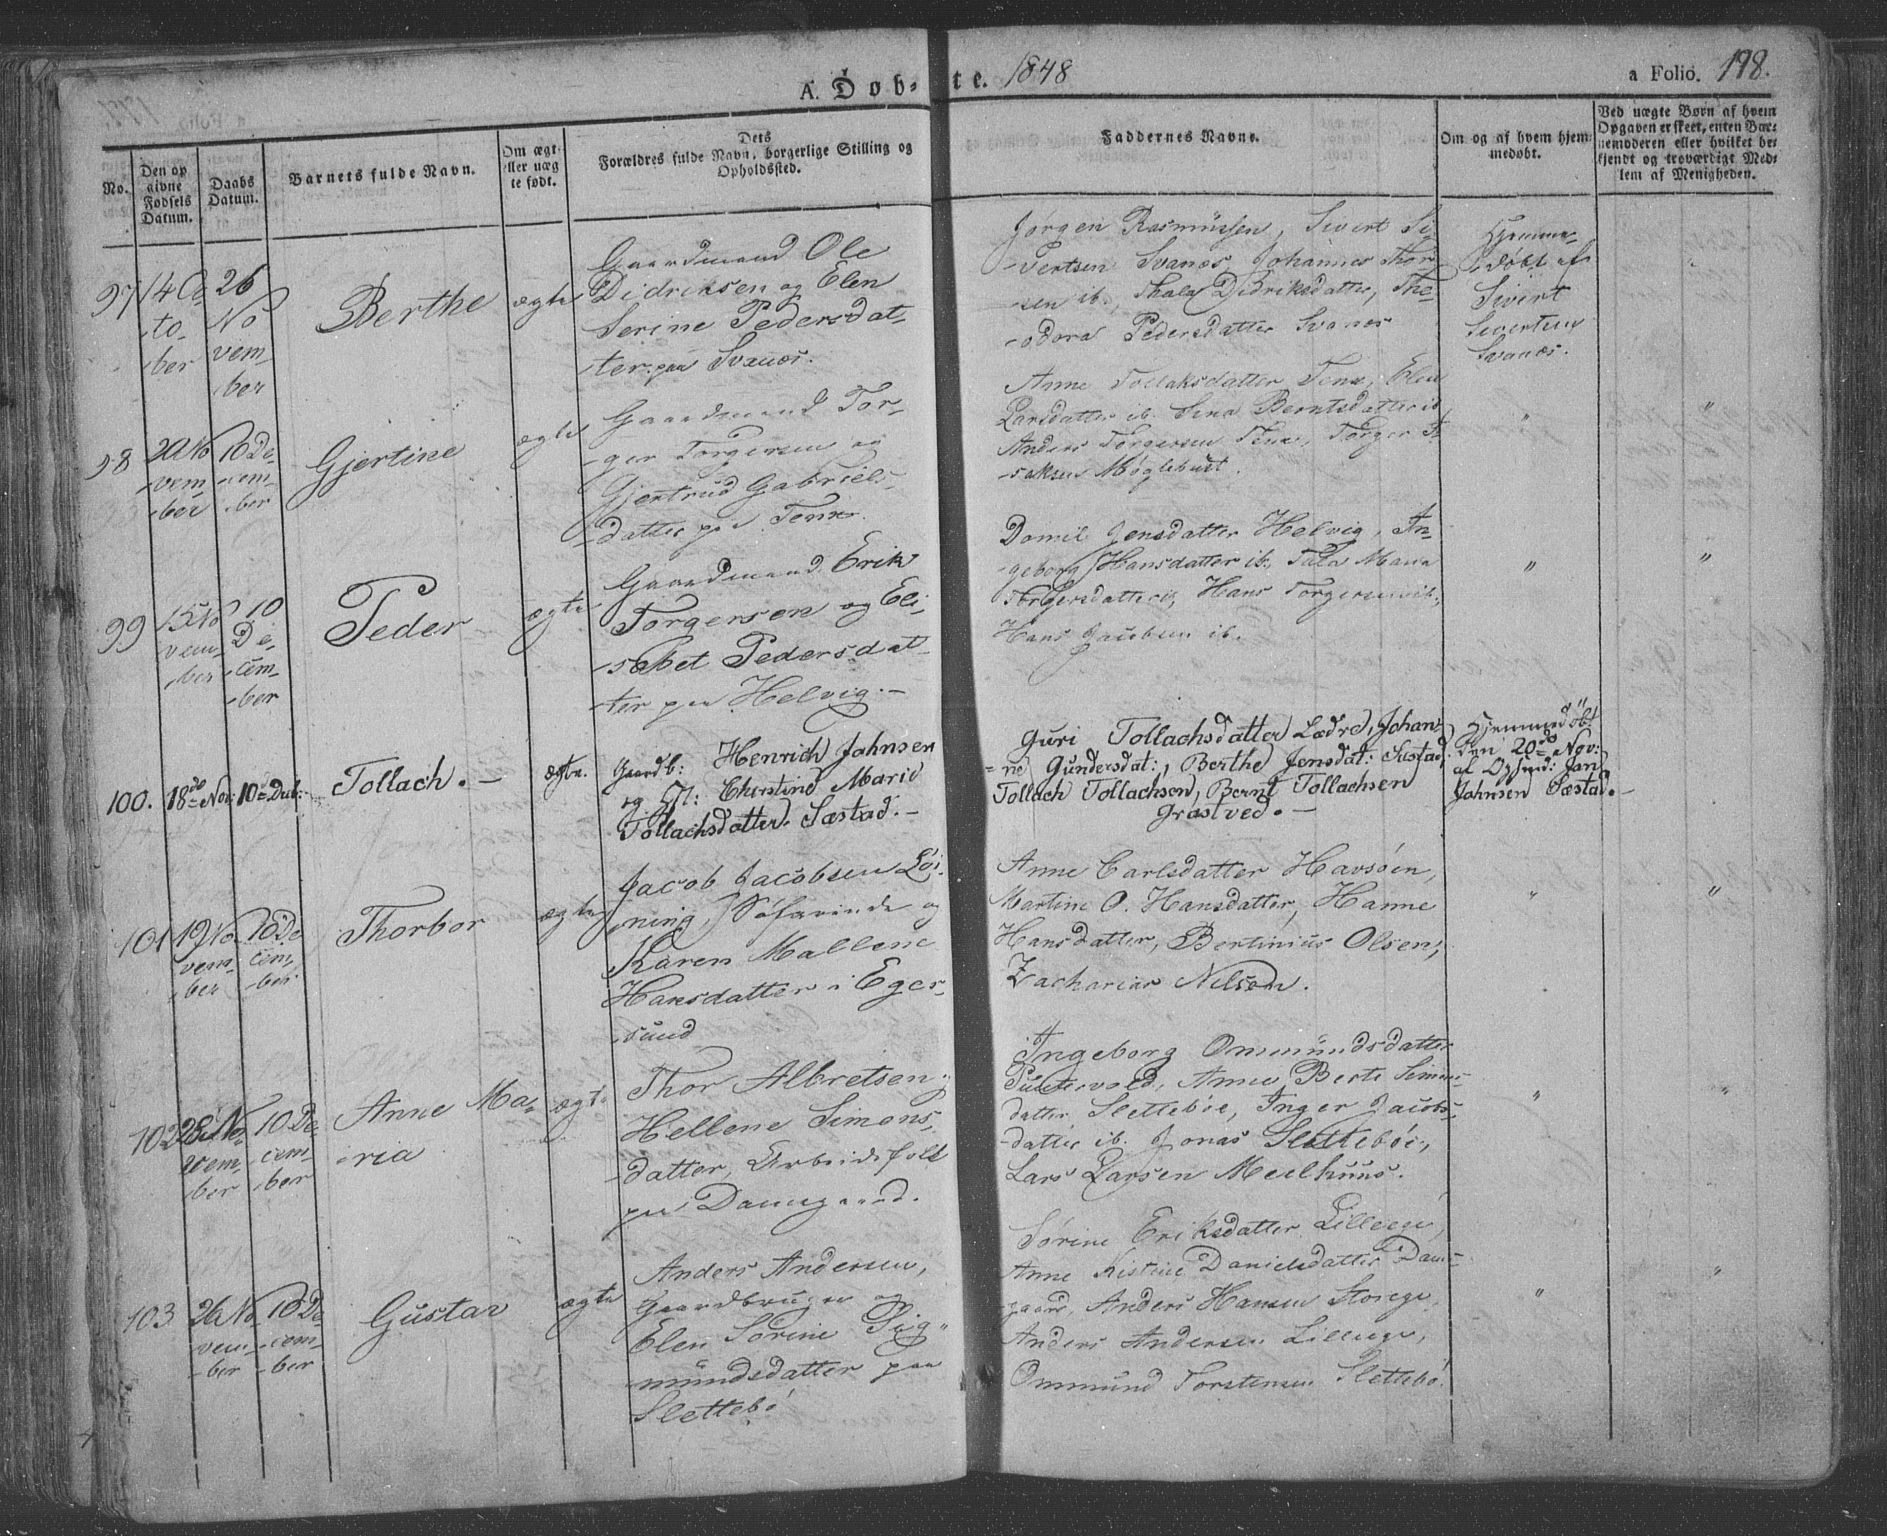 A. Døb- te. 1848
a Folio. 198.
No.
Den op
givne
Fødsels
Datum.
Daabs
Datum.
Barnets fulde Navn.
Om ægt
eller uæg
te født.
Dets
Forældres fulde Navn, borgerlige Stilling og
Opholdssted.
Faddernes Navne.
Om og af hvem hjem-
medøbt.
Ved uægte Børn af hvem
Opgaven er skeet, enten Bar-
nemoderen eller hvilket be-
kjendt og troværdigt Med-
lem af Menigheden.
97
14 Oc
to-
ber
26
No
vem-
ber
Berthe
ægte
Gaardmand Ole
Didriksen og Elen
Serine Pedersdat-
ter paa Svanæs.
Jørgen Rasmussen, Sivert Si-
vertsen Svanæs, Johannes Thor-
sen ib. Thala Didriksdatter, The-
odora Pedersdatter Svanæs
Hjemme-
døbt af
Sivert
Sivertsen
Svanæs.
98
20 No
vem-
ber
10 De-
cem-
ber
Gjertine
ægte
Gaardmand Tor-
ger Torgersen og
Gjertrud Gabriels-
datter paa Tenx.
Anne Tollaksdatter Tenx, Elen
Larsdatter ib. Sina Berntsdatter ib
Anders Torgersen Tenx, Torger I-
saksen Møglebust.
" "
99
15 No
vem-
ber
10
De-
cem-
ber
Peder
ægte
Gaardmand Erik
Torgersen og Eli-
sabet Pedersdat-
ter paa Helvig.-
Domil Jensdatter Helvig, In-
geborg Hansdatter ib., Tala Maria
Torgersdatter ib, Hans Torgersen ib.,
Hans Jacobsen ib.
" "
100.
18de Nov:
10= Dcb:
Tollach. -
ægte.
Gaardb: Henrich Johnsen
og H: Cherstine Marie
Tollachsdatter. Sæstad. -
Guri Tollachsdatter Lædre, Johan-
ne Gundersdat:, Berthe Jensdat: Sæstad,
Tollach Tollachsen, Bernt Tollachsen
Grastved. -
Hjemmedøbt
den 20de Nov:
af Jan
Johnsen Sæstad. -
"
101
19 No
vem-
ber
10 De
cem-
ber
Thorbor
ægte
Jacob Jacobsen Löi-
ning, Søfarende og
Karen Mallene
Hansdatter i Eger-
sund
Anne Carlsdatter Havsøen,
Martine O. Hansdatter, Hanne
Hansdatter, Bertinius Olsen,
Zacharias Nilsen.
" "
102
28 No
vem-
ber
10 De-
cem-
ber
Anne Ma-
ria
ægte
Thor Albretsen,
Hellene Simons-
datter, Arbeidsfolk
paa Damgaard.
Ingeborg Ommundsdatter
Puntervold, Anne Berte Simons-
datter Slettebøe, Inger Jacobs-
datter ib. Jonas Slettebøe,
Lars Larsen Meelhuus.
" "
103
26 No
vem-
ber
10 De
cem-
ber
Gustav
ægte
Anders Andersen,
Gaardbruger og
Elen Sørine Sig-
mundsdatter paa
Slettebø
Sørine Eriksdatter Lilleege,
Anne Kistine Danielsdatter Dam-
gaard, Anders Hansen Storege,
Anders Andersen Lilleege,
Ommund Torstensen Slettebø.
" "